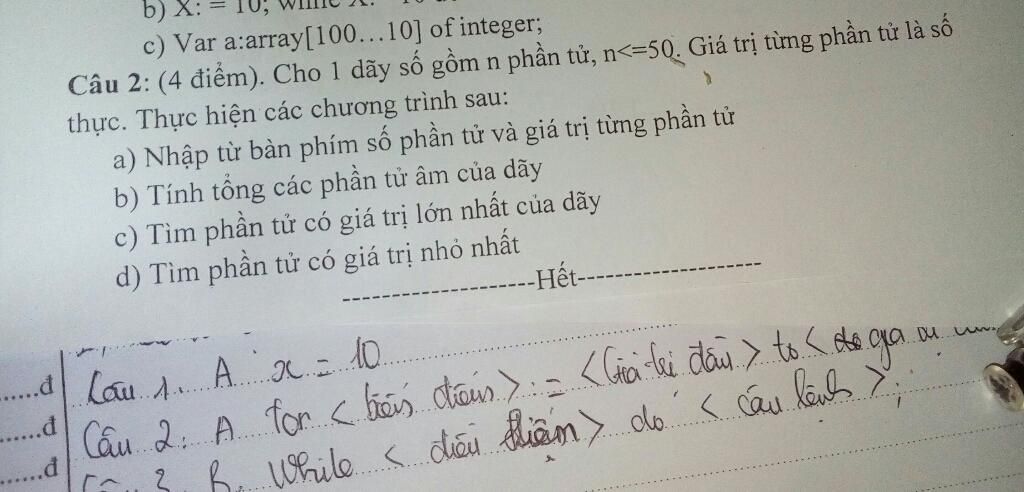 b) X: = 10; while X:
c) Var a:array[100…10] of integer;
Câu 2: (4 điểm). Cho 1 dãy số gồm n phần tử, n<=50. Giá trị từng phần tử là số
thực. Thực hiện các chương trình sau:
a) Nhập từ bàn phím số phần tử và giá trị từng phần tử
b) Tính tổng các phần tử âm của dãy
c) Tìm phần tử có giá trị lớn nhất của dãy
d) Tìm phần tử có giá trị nhỏ nhất
--------------------Hết--------------------
......đ Câu 1. A x = 10
......đ Câu 2: A for < biến đếm > := < Giá trị đầu > to <
......đ 3 B. While < điều kiện > do < câu lệnh > ;